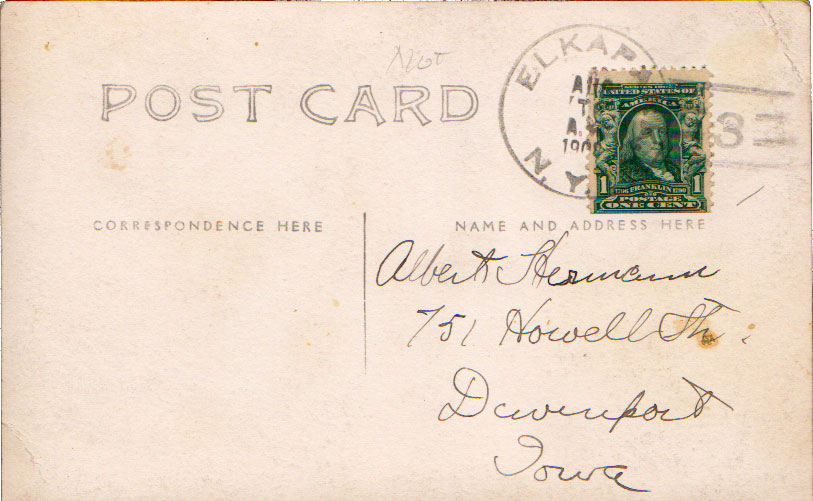 ELKAP
AU
A.
190
N.Y.
3
SERIES 1902
UNITED STATES OF
AMERICA
1 1706 FRANKLIN 1790 1
POSTAGE
ONE CENT
POST CARD
CORRESPONDENCE HERE
NAME AND ADDRESS HERE
Albert Hermann
751 Howell St.
Davenport
Iowa